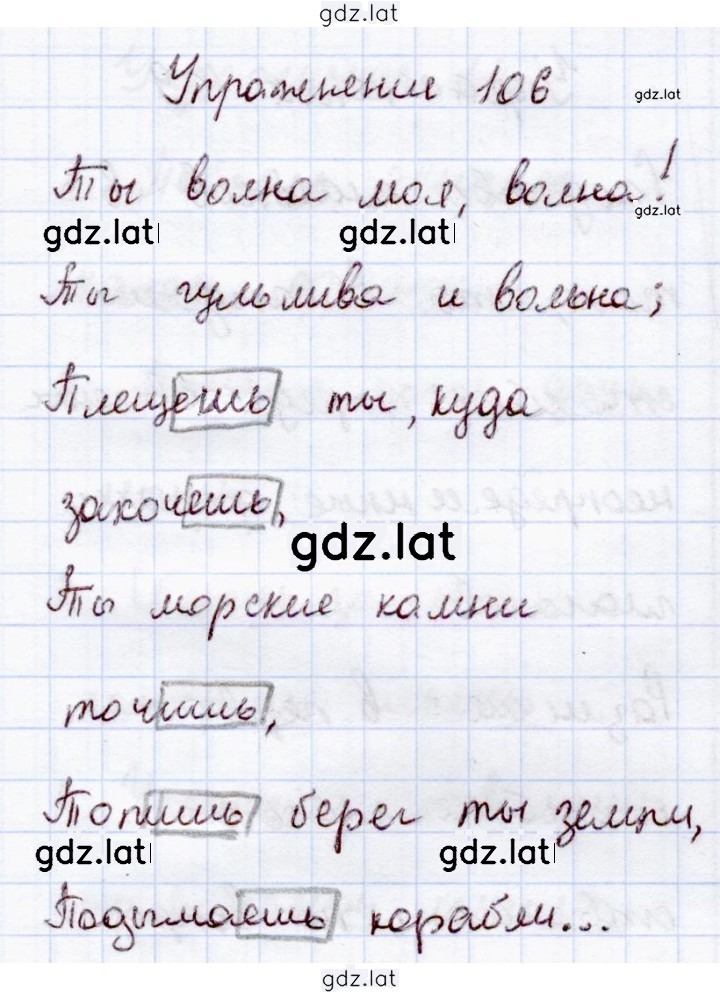 gdz.lat
Упражнение 106
gdz.lat
Ты волна моя, волна!
gdz.lat
gdz.lat gdz.lat
Ты гульлива и вольна;
Плещешь ты, куда
захочешь,
gdz.lat
Ты морские камни
точишь,
Топишь берег ты земли,
gdz.lat gdz.lat
Подымаешь корабли...
gdz.lat